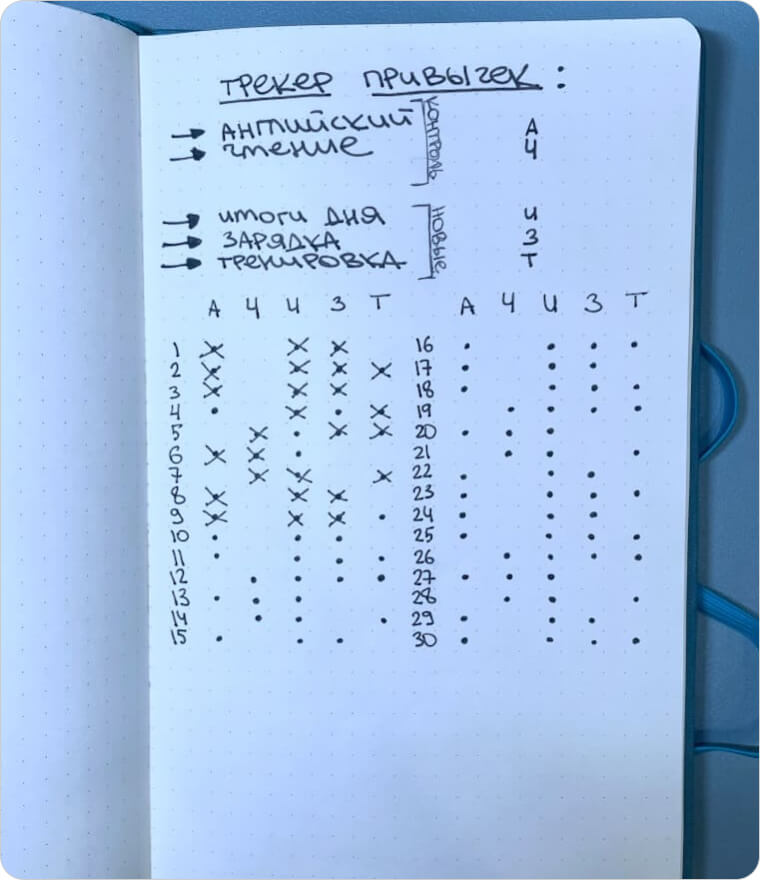 ТРЕКЕР ПРИВЫЧЕК:
→ АНГЛИЙСКИЙ А
→ чтение Ч
КОНТРОЛЬ
→ итоги дня И
→ ЗАРЯДКА З
→ ТРЕНИРОВКА Т
НОВЫЕ
А Ч И З Т А Ч И З Т
1 16
2 17
3 18
4 19
5 20
6 21
7 22
8 23
9 24
10 25
11 26
12 27
13 28
14 29
15 30